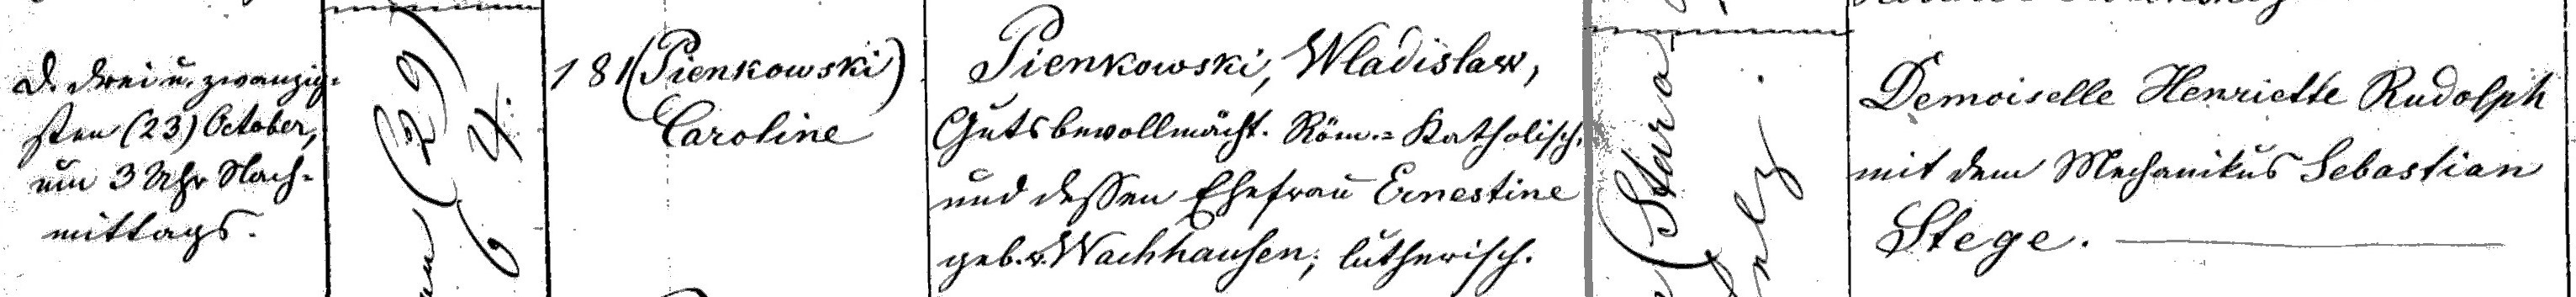 D. drei u. zwanzig-
sten (23) October,
um 3 Uhr Nach-
mittags.
(29)
181 (Pienkowski)
Caroline
Pienkowski, Wladislaw,
Gutsbevollmächt. Röm.-Katholisch.
und dessen Ehefrau Ernestine
geb. v. Wachhausen, lutherisch.
(Stara
Demoiselle Henriette Rudolph
mit dem Mechanikus Sebastian
Stege.